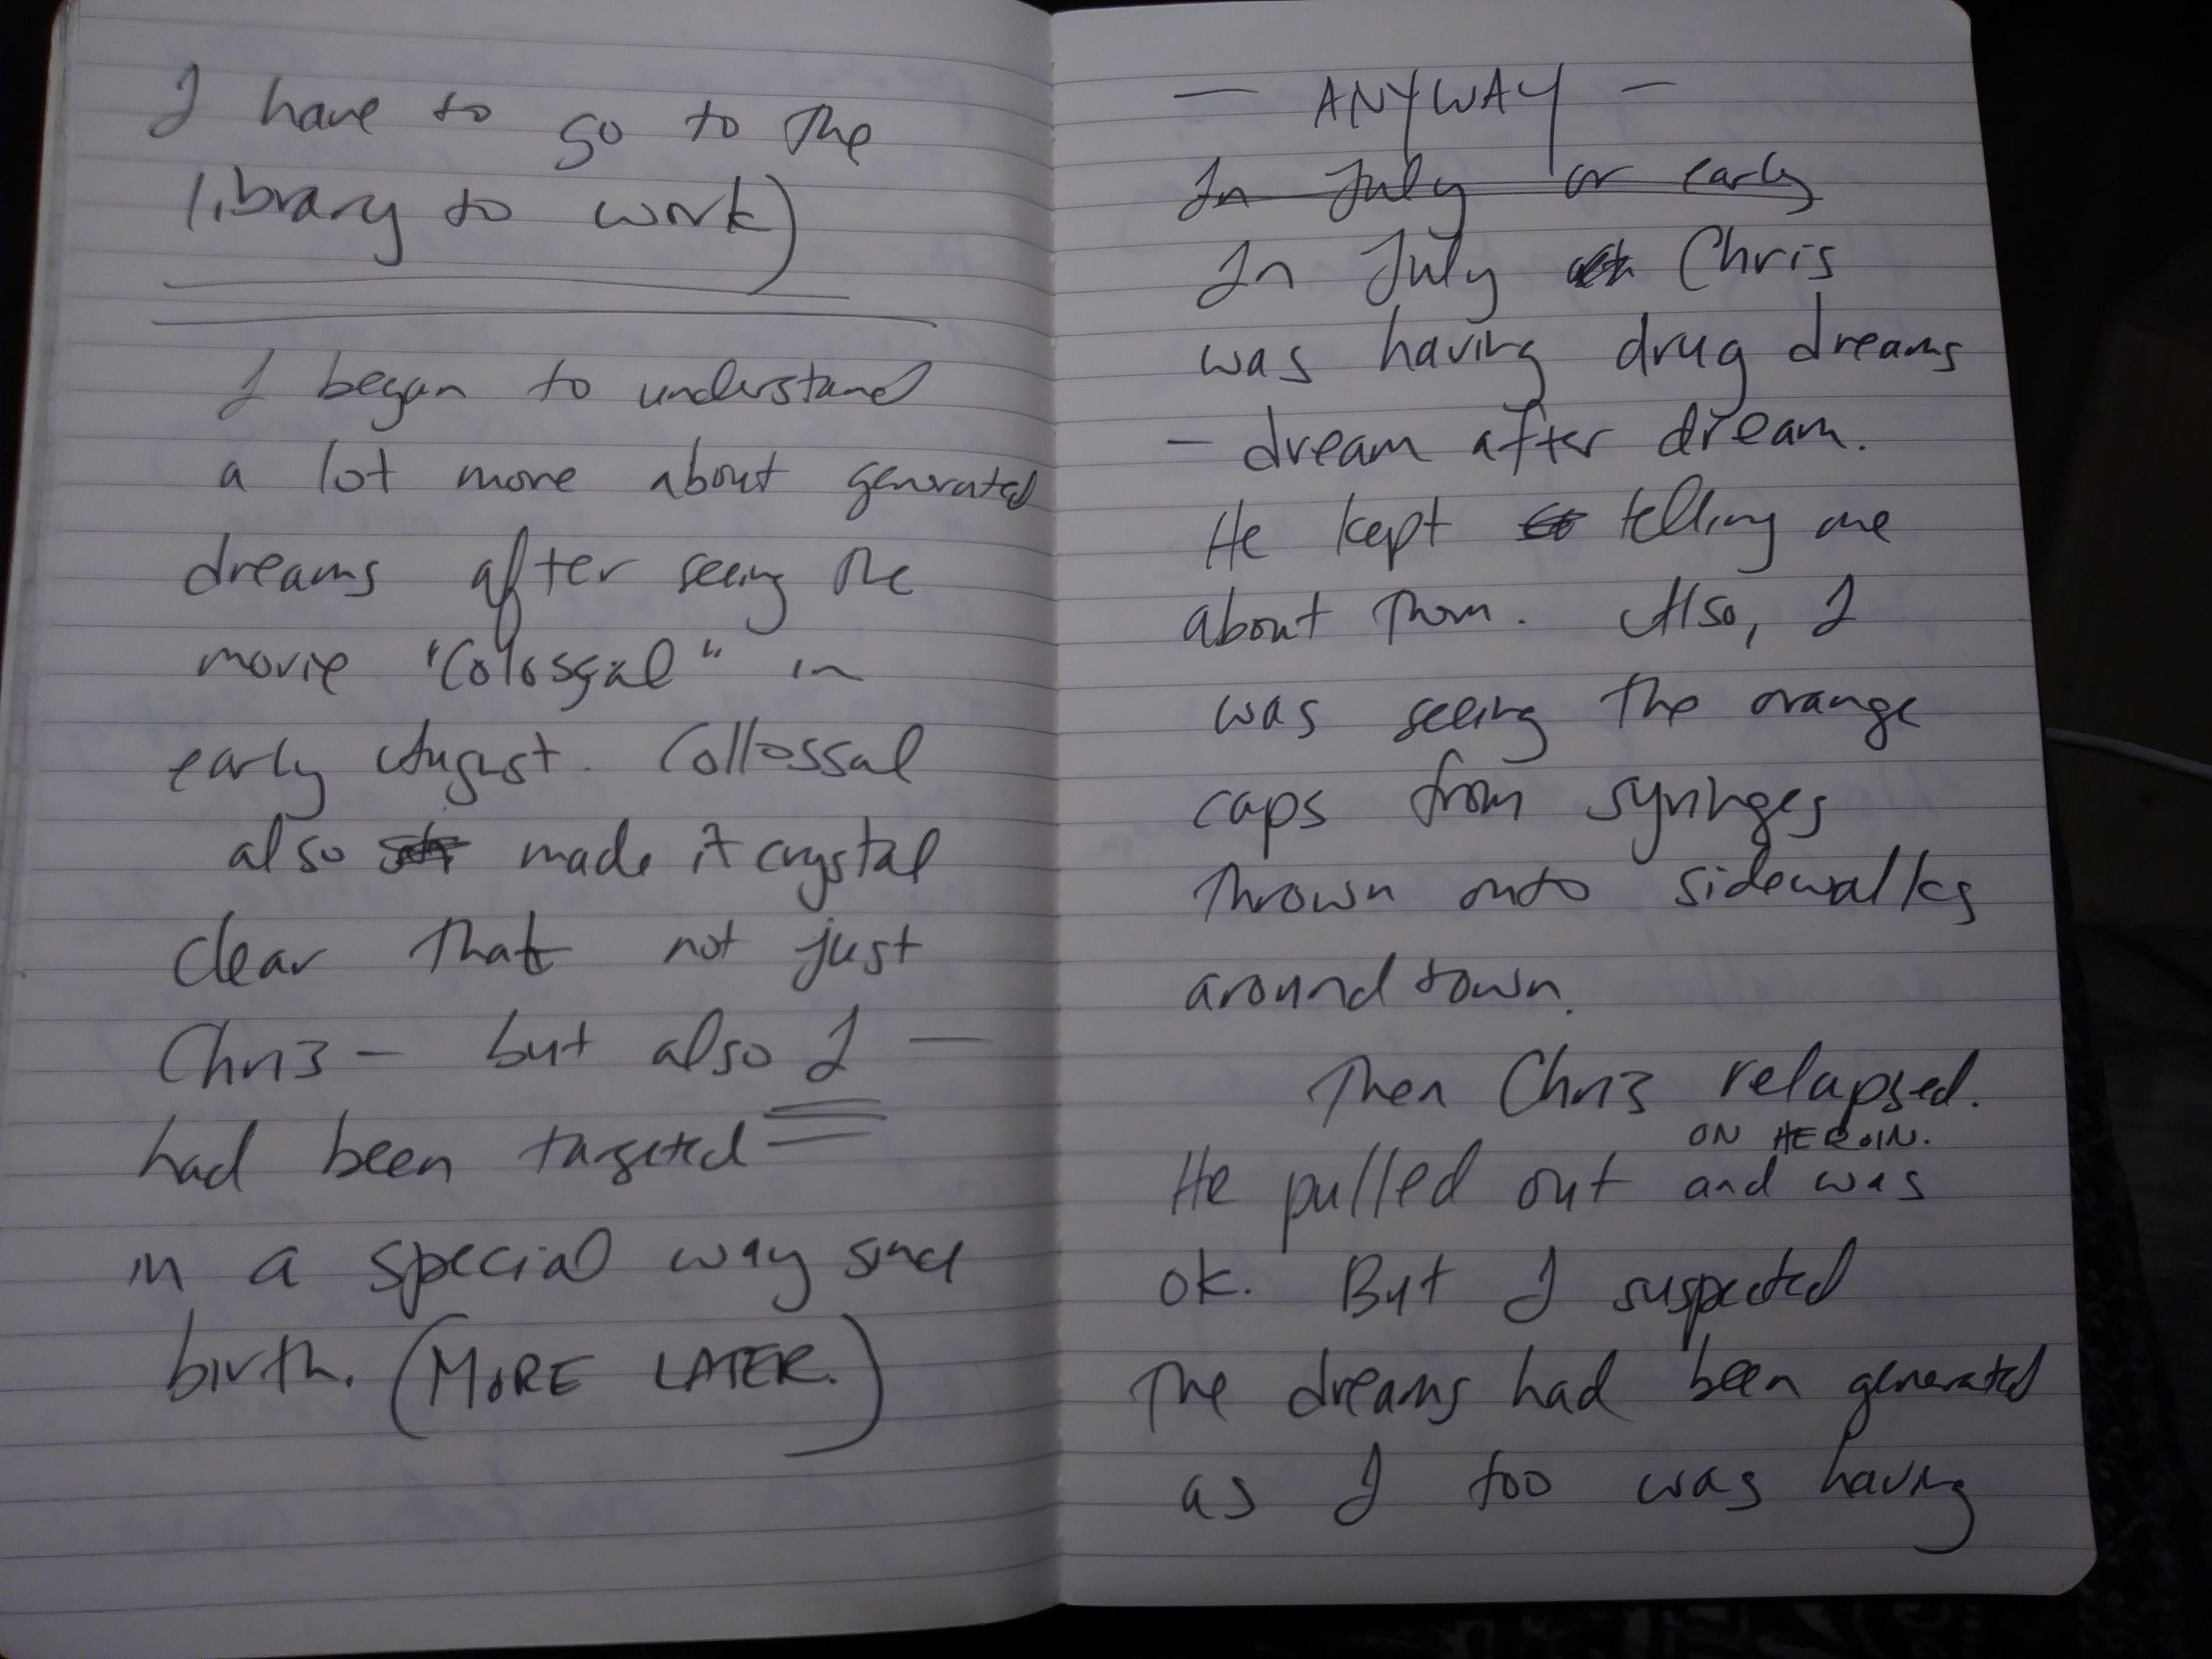 I have to go to the
library to work)
I began to understand
a lot more about generated
dreams after seeing the
movie "Colossal" in
early August. Collossal
also made it crystal
clear that not just
Chris – but also I –
had been targeted
in a special way since
birth. (MORE LATER.)
— ANYWAY —
In July or early
In July Chris
was having drug dreams
– dream after dream.
He kept telling me
about them. Also, I
was seeing the orange
caps from syringes
thrown onto sidewalks
around town.
Then Chris relapsed.
ON HEROIN.
He pulled out and was
ok. But I suspected
the dreams had been generated
as I too was having